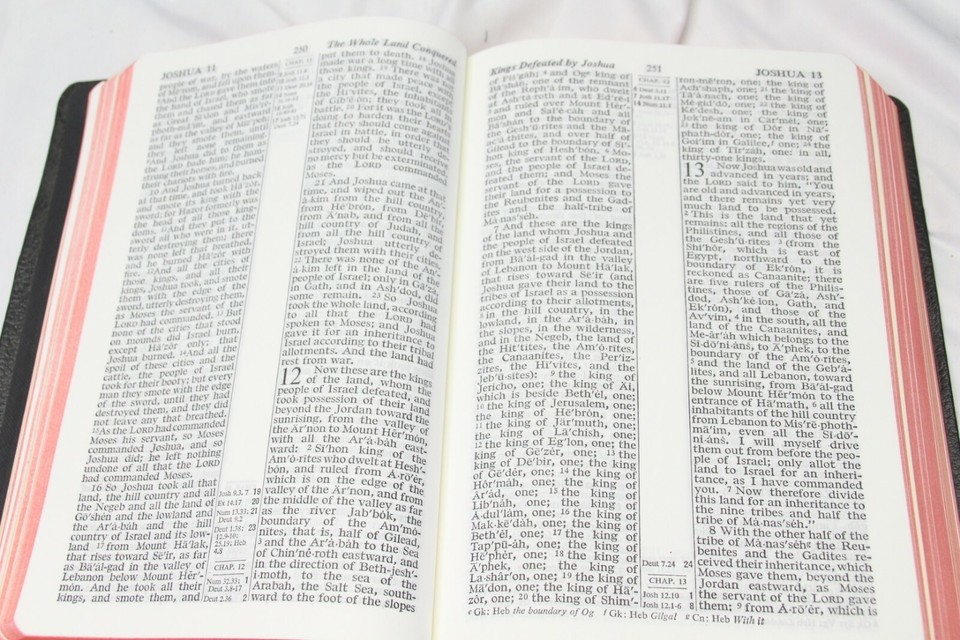 JOSHUA 11
250
The Whole Land Conquered
people of war, by the waters
And the LORD gave them into
Great Sidon and
as far as the valley of Miz'peh;
until
they left none remaining.
And Joshua did to them as
the LORD bade him; he ham-
strung their horses, and burned
their chariots with fire.
10 And Joshua turned back
at that time, and took Hā'zôr,
and smote its king with the
sword; for Hazor formerly was
the head of all those king-
doms. 11And they put to the
sword all who were in it, ut-
terly destroying them; there
was none left that breathed,
and he burned Hā'zôr with
fire. 12And all the cities of
those kings, and all their
kings, Joshua took, and smote
them with the edge of the
sword, utterly destroying them,
as Moses the servant of the
LORD had commanded. 13But
none of the cities that stood
on mounds did Israel burn,
except Hā'zôr only; that
Joshua burned. 14And all the
spoil of these cities and the
cattle, the people of Israel
took for their booty; but every
man they smote with the edge
of the sword, until they had
destroyed them, and they did
not leave any that breathed.
15As the LORD had commanded
Moses his servant, so Moses
commanded Joshua, and so
Joshua did; he left nothing
undone of all that the LORD
had commanded Moses.
16 So Joshua took all that
land, the hill country and all
the Negeb and all the land of
Gō'shén and the lowland and
the Ar'á·bàh and the hill
country of Israel and its low-
land 17from Mount Hā'lak,
that rises toward Sē'ír, as far
as Bā'ál-gad in the valley of
Lebanon below Mount Hér'-
món. And he took all their
kings, and smote them, and
Josh 8.3, 7 19
Ex 14.17 20
Num 13.33; 21
Deut 9.2
Deut 1.38; 23
12.9-10;
25.19; Heb
4.8
CHAP. 12
Num 32.33; 1
Deut 3.8-17
Deut 2.36 2
put them to death. 18Joshua
made war a long time with all
those kings. 19There was not
a city that made peace with
the people of Israel, except
the Hī'vītes, the inhabitants
of Gib'é·on; they took all in
battle. 20For it was the LORD's
doing to harden their hearts
that they should come against
Israel in battle, in order that
they should be utterly de-
stroyed, and should receive
no mercy but be exterminated,
as the LORD commanded
Moses.
21 And Joshua came at that
time, and wiped out the An'-
á·kim from the hill country,
from Hē'brón, from Dē'bír,
from Ā'nab, and from all the
hill country of Judah, and
from all the hill country of
Israel; Joshua utterly de-
stroyed them with their cities.
22There was none of the An'-
á·kim left in the land of the
people of Israel; only in Gā'zá,
in Gath, and in Ash'dod, did
some remain. 23So Joshua
took the whole land, according
to all that the LORD had
spoken to Moses; and Joshua
gave it for an inheritance to
Israel according to their tribal
allotments. And the land had
rest from war.
12 Now these are the kings
of the land, whom the
people of Israel defeated, and
took possession of their land
beyond the Jordan toward the
sunrising, from the valley of
the Ar'non to Mount Hér'món,
with all the Ar'á·bàh east-
ward: 2Sī'hon king of the
Am'o·rites who dwelt at Hesh'-
bón, and ruled from Á·rō'ér,
which is on the edge of the
valley of the Ar'non, and from
the middle of the valley as far
as the river Jab'bók, the
boundary of the Am'mo-
nites, that is, half of Gilead,
3and the Ar'á·bàh to the Sea
of Chin'né·roth eastward, and
in the direction of Beth-jesh'-
i·moth, to the sea of the
Arabah, the Salt Sea, south-
ward to the foot of the slopes
Kings Defeated by Joshua
251
JOSHUA 13
of Pis'gàh; 4and Oge king of
Bā'shán, one of the remnant
of the Reph'á·im, who dwelt
at Ash'tá·roth and at Ed'ré·ī
5and ruled over Mount Hér'-
món and Sal'e·cáh and all
Bā'shán to the boundary of
the Gesh'ú·rites and the Mā-
ac'á·thites, and over half of
Gilead to the boundary of Sī'-
hon king of Hesh'bón. 6Mo-
ses, the servant of the LORD,
and the people of Israel de-
feated them; and Moses the
servant of the LORD gave
their land for a possession to
the Reubenites and the Gad-
ites and the half-tribe of
Má·nas'séh.
7 And these are the kings
of the land whom Joshua and
the people of Israel defeated
on the west side of the Jordan,
from Bā'ál-gad in the valley
of Lebanon to Mount Hā'lak,
that rises toward Sē'ír (and
Joshua gave their land to the
tribes of Israel as a possession
according to their allotments,
8in the hill country, in the
lowland, in the Ar'á·bàh, in
the slopes, in the wilderness,
and in the Negeb, the land of
the Hit'tites, the Am'o·rites,
the Canaanites, the Per'iz-
zites, the Hī'vites, and the
Jeb'ú·sites): 9the king of
Jericho, one; the king of Ai,
which is beside Beth'el, one;
10the king of Jerusalem, one;
the king of Hē'brón, one;
11the king of Jär'muth, one;
the king of Lā'chish, one;
12the king of Eg'lon, one; the
king of Gē'zér, one; 13the
king of Dē'bír, one; the king
of Gē'dér, one; 14the king of
Hôr'máh, one; the king of
Ár'ád, one; 15the king of
Lib'náh, one; the king of
Á·dul'lám, one; 16the king of
Mak·kē'dáh, one; the king of
Beth'el, one; 17the king of
Tap'pū·áh, one; the king of
Hē'phér, one; 18the king of
Ā'phek, one; the king of
La·shâr'on, one; 19the king of
Mā'don, one; the king of Hā'-
zôr, one; 20the king of Shim'-
CHAP. 12
Deut 7.24 24
CHAP. 13
Josh 12.10 1
Josh 12.1-6 8
ron-mē'ron, one; the king of
Ach'shaph, one; 21the king of
Tā'á·nach, one; the king of
Mé·gid'dō, one; 22the king of
Kē'desh, one; the king of
Jok'nē-am in Cär'mél, one;
23the king of Dôr in Nā'-
phath-dôr, one; the king of
Goi'im in Galilee,f one; 24the
king of Tīr'záh, one: in all,
thirty-one kings.
13 Now Joshua was old and
advanced in years; and
the LORD said to him, "You
are old and advanced in years,
and there remains yet very
much land to be possessed.
2This is the land that yet
remains: all the regions of the
Philistines, and all those of
the Gesh'ú·rites 3(from the
Shī'hôr, which is east of
Egypt, northward to the
boundary of Ek'rón, it is
reckoned as Canaanite; there
are five rulers of the Philis-
tines, those of Gā'zá, Ash'-
dod, Ash'ké·lon, Gath, and
Ek'rón), and those of the
Av'vim, 4in the south, all the
land of the Canaanites, and
Mē-âr'áh which belongs to the
Sī·dō'ni·áns, to Ā'phek, to the
boundary of the Am'o·rites,
5and the land of the Geb'á-
lites, and all Lebanon, toward
the sunrising, from Bā'ál-gad
below Mount Hér'món to the
entrance of Hā'math, 6all the
inhabitants of the hill country
from Lebanon to Mis'ré·photh-
mā'im, even all the Sī·dō'-
ni·áns. I will myself drive
them out from before the peo-
ple of Israel; only allot the
land to Israel for an inheri-
tance, as I have commanded
you. 7Now therefore divide
this land for an inheritance to
the nine tribes and half the
tribe of Má·nas'séh."
8 With the other half of the
tribe of Má·nas'séhg the Reu-
benites and the Gadites re-
ceived their inheritance, which
Moses gave them, beyond the
Jordan eastward, as Moses
the servant of the LORD gave
them: 9from Á·rō'ér, which is
e Gk: Heb the boundary of Og f Gk: Heb Gilgal g Cn: Heb With it